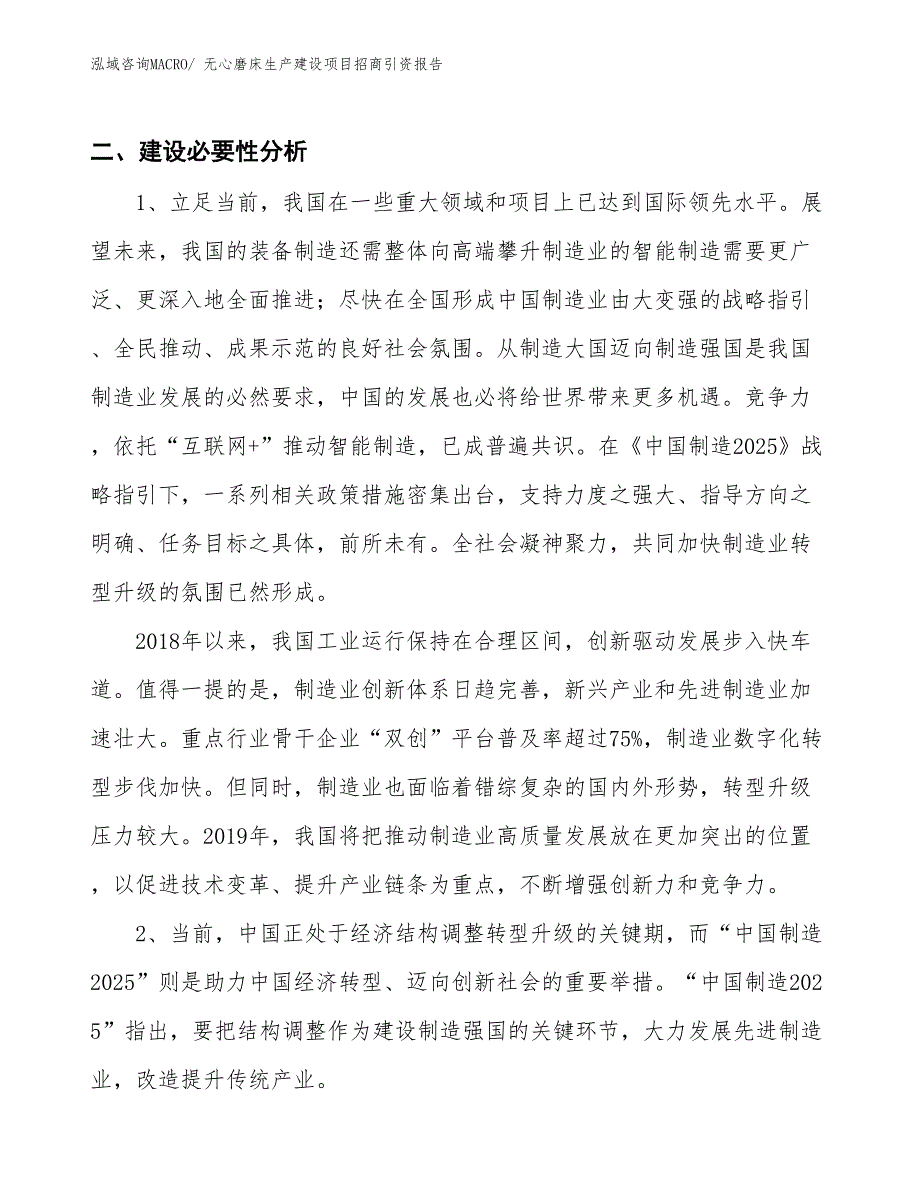 泓域咨询MACRO/ 无心磨床生产建设项目招商引资报告
二、建设必要性分析
1、立足当前，我国在一些重大领域和项目上已达到国际领先水平。展
望未来，我国的装备制造还需整体向高端攀升制造业的智能制造需要更广
泛、更深入地全面推进；尽快在全国形成中国制造业由大变强的战略指引
、全民推动、成果示范的良好社会氛围。从制造大国迈向制造强国是我国
制造业发展的必然要求，中国的发展也必将给世界带来更多机遇。竞争力
，依托“互联网+”推动智能制造，已成普遍共识。在《中国制造2025》战
略指引下，一系列相关政策措施密集出台，支持力度之强大、指导方向之
明确、任务目标之具体，前所未有。全社会凝神聚力，共同加快制造业转
型升级的氛围已然形成。
2018年以来，我国工业运行保持在合理区间，创新驱动发展步入快车
道。值得一提的是，制造业创新体系日趋完善，新兴产业和先进制造业加
速壮大。重点行业骨干企业“双创”平台普及率超过75%，制造业数字化转
型步伐加快。但同时，制造业也面临着错综复杂的国内外形势，转型升级
压力较大。2019年，我国将把推动制造业高质量发展放在更加突出的位置
，以促进技术变革、提升产业链条为重点，不断增强创新力和竞争力。
2、当前，中国正处于经济结构调整转型升级的关键期，而“中国制造
2025”则是助力中国经济转型、迈向创新社会的重要举措。“中国制造202
5”指出，要把结构调整作为建设制造强国的关键环节，大力发展先进制造
业，改造提升传统产业。